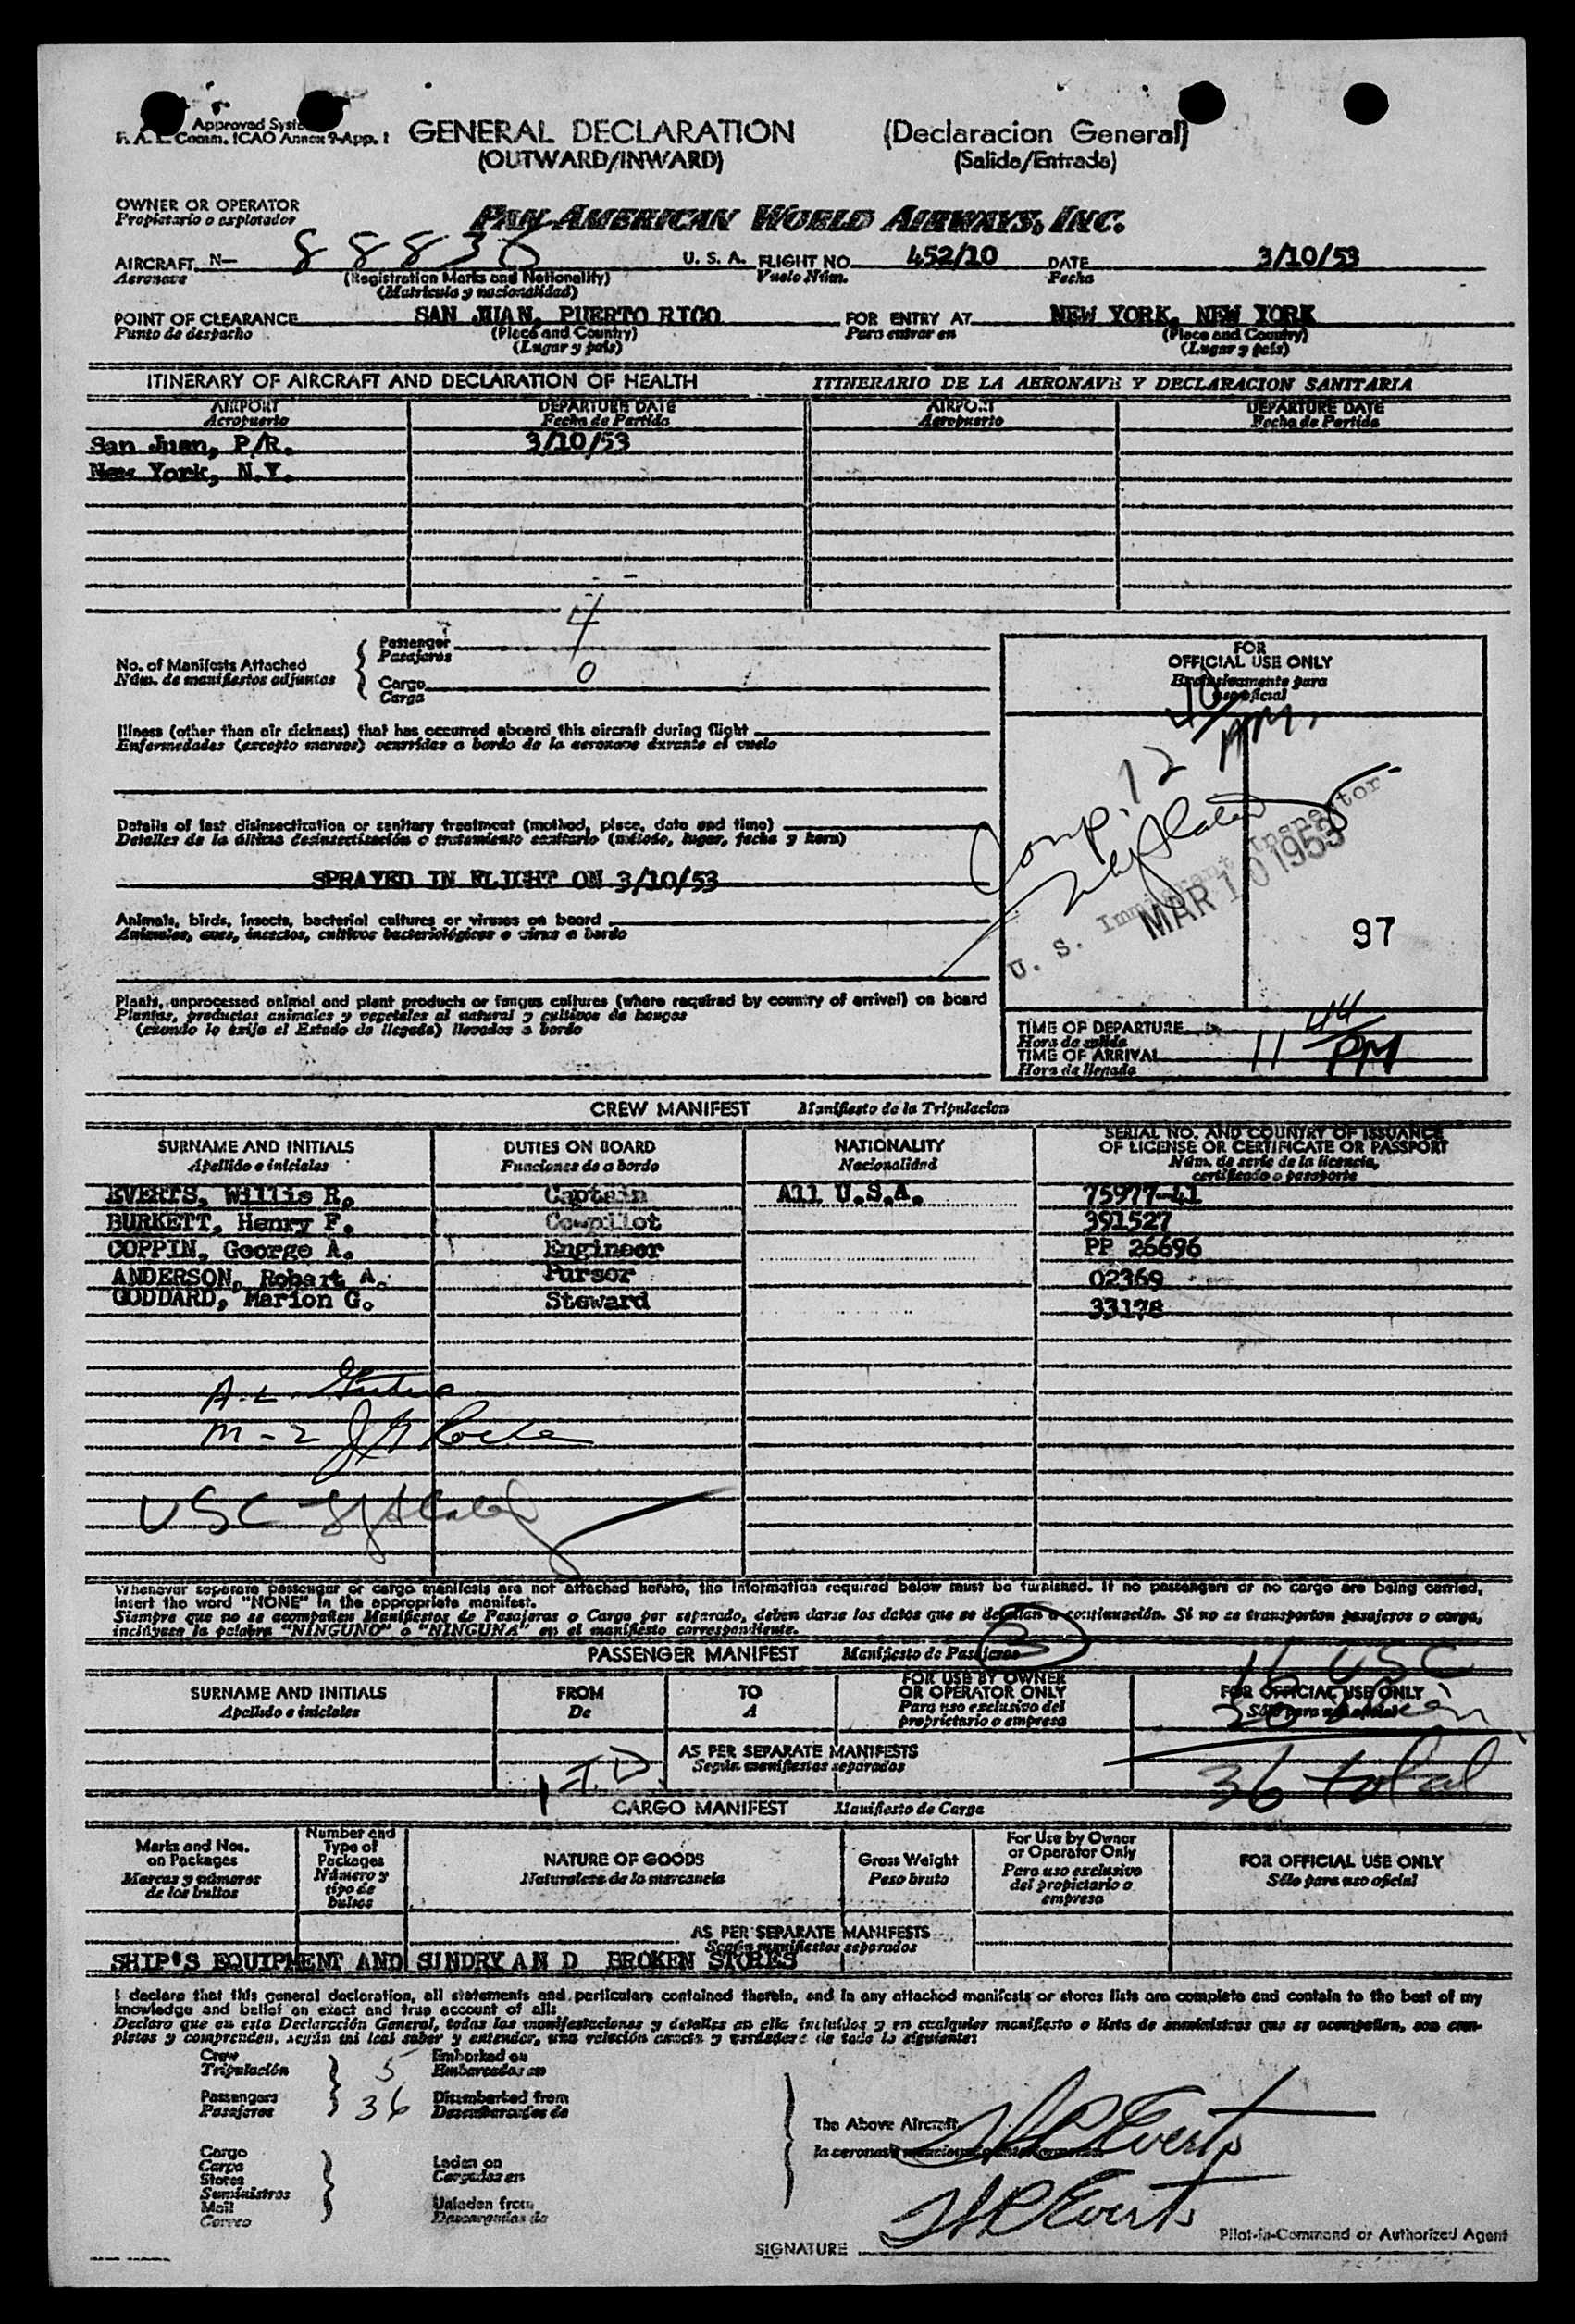 Approved Syst
F. A. L. Comm. ICAO Annex 9-App. 1
GENERAL DECLARATION (Declaracion General)
(OUTWARD/INWARD) (Salida/Entrada)
OWNER OR OPERATOR
Propietario o explotador
PAN AMERICAN WORLD AIRWAYS, INC.
AIRCRAFT N- 88836 U. S. A. FLIGHT NO. 452/10 DATE 3/10/53
Aeronave (Registration Marks and Nationality) Vuelo Núm. Fecha
(Matricula y nacionalidad)
POINT OF CLEARANCE SAN JUAN, PUERTO RICO FOR ENTRY AT NEW YORK, NEW YORK
Punto de despacho (Place and Country) Para entrar en (Place and Country)
(Lugar y país) (Lugar y país)
ITINERARY OF AIRCRAFT AND DECLARATION OF HEALTH ITINERARIO DE LA AERONAVE Y DECLARACION SANITARIA
AIRPORT DEPARTURE DATE AIRPORT DEPARTURE DATE
Aeropuerto Fecha de Partida Aeropuerto Fecha de Partida
San Juan, P/R. 3/10/53
New York, N.Y.
No. of Manifests Attached
Núm. de manifiestos adjuntos
Passenger 4
Pasajeros
Cargo 0
Carga
Illness (other than air sickness) that has occurred aboard this aircraft during flight
Enfermedades (excepto mareos) ocurridas a bordo de la aeronave durante el vuelo
Details of last disinsectization or sanitary treatment (method, place, date and time)
Detalles de la última desinsectización o tratamiento sanitario (método, lugar, fecha y hora)
SPRAYED IN FLIGHT ON 3/10/53
Animals, birds, insects, bacterial cultures or viruses on board
Animales, aves, insectos, cultivos bacteriológicos o virus a bordo
Plants, unprocessed animal and plant products or fungus cultures (where required by country of arrival) on board
Plantas, productos animales y vegetales al natural y cultivos de hongos
(cuando lo exija el Estado de llegada) llevados a bordo
FOR
OFFICIAL USE ONLY
Exclusivamente para
uso oficial
Comp. 12 40 AM.
U. S. Immigrant Inspector
MAR 10 1953
97
TIME OF DEPARTURE
Hora de salida
TIME OF ARRIVAL 11 44 PM
Hora de llegada
CREW MANIFEST Manifiesto de la Tripulacion
SURNAME AND INITIALS DUTIES ON BOARD NATIONALITY SERIAL NO. AND COUNTRY OF ISSUANCE
OF LICENSE OR CERTIFICATE OR PASSPORT
Apellido e iniciales Funciones de a bordo Nacionalidad Núm. de serie de la licencia,
certificado o pasaporte
EVERTS, Willis R. Captain All U.S.A. 75977-41
BURKETT, Henry F. Co-pilot 391527
COPPIN, George A. Engineer PP 26696
ANDERSON, Robart A. Pursor 02369
GODDARD, Marion G. Steward 33178
A-L
M-2
USC
Whenever separate passenger or cargo manifests are not attached hereto, the information required below must be furnished. If no passengers or no cargo are being carried,
insert the word "NONE" in the appropriate manifest.
Siempre que no se acompañen Manifiestos de Pasajeros o Carga por separado, deben darse los datos que se detallan a continuación. Si no se transportan pasajeros o carga,
inclúyase la palabra "NINGUNO" o "NINGUNA" en el manifiesto correspondiente.
PASSENGER MANIFEST Manifiesto de Pasajeros
SURNAME AND INITIALS FROM TO FOR USE BY OWNER
OR OPERATOR ONLY FOR OFFICIAL USE ONLY
Apellido e iniciales De A Para uso exclusivo del
proprietario o empresa Sólo para uso oficial
USC
AS PER SEPARATE MANIFESTS
Según manifiestos separados
36 total
CARGO MANIFEST Manifiesto de Carga
Marks and Nos.
on Packages
Marcas y números
de los bultos
Number and
Type of
Packages
Número y
tipo de
bultos
NATURE OF GOODS
Naturaleza de la mercancía
Gross Weight
Peso bruto
For Use by Owner
or Operator Only
Para uso exclusivo
del propietario o
empresa
FOR OFFICIAL USE ONLY
Sólo para uso oficial
AS PER SEPARATE MANIFESTS
Según manifiestos separados
SHIP'S EQUIPMENT AND SUNDRY AN D BROKEN STORES
I declare that this general declaration, all statements and particulars contained therein, and in any attached manifests or stores lists are complete and contain to the best of my
knowledge and belief an exact and true account of all:
Declaro que en esta Declaración General, todas las manifestaciones y detalles en ella incluídos y en cualquier manifiesto o lista de suministros que se acompañen, son com-
pletas y comprenden, según mi leal saber y entender, una relación exacta y verdadera de todo lo siguiente:
Crew 5 Embarked on
Tripulación Embarcados en
Passengers 36 Disembarked from
Pasajeros Desembarcados de
The Above Aircraft
Cargo
Carga
Stores
Suministros
Mail
Correo
Laden on
Cargados en
Unladen from
Descargados de
Pilot-in-Command or Authorized Agent
SIGNATURE